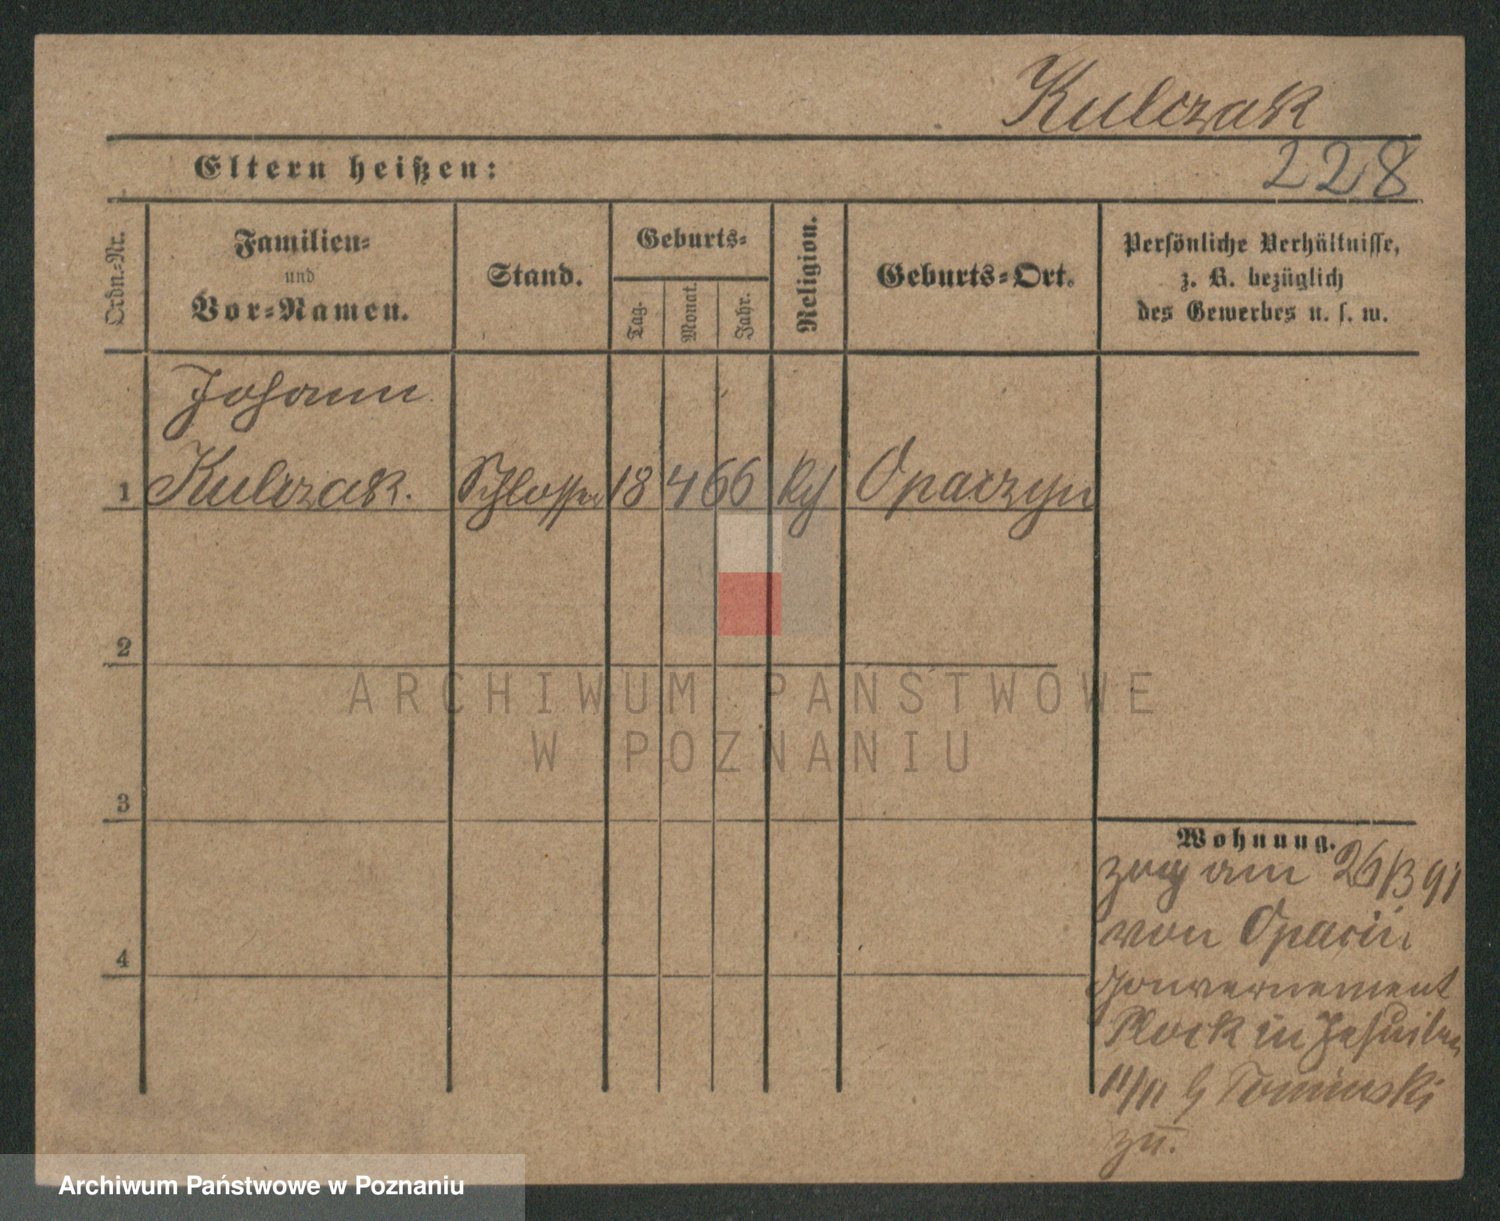 Kulczak
Eltern heißen:
228
Ordn.-Nr.
Familien-
und
Vor-Namen.
Stand.
Geburts-
Tag.
Monat.
Jahr.
Religion.
Geburts-Ort.
Persönliche Verhältnisse,
z. B. bezüglich
des Gewerbes u. s. w.
Johann
1 Kulczak. Schlosser 18 4 66 Opaczyn
2
3
4
Wohnung.
zog am 26/3 91
von
Gouvernement
Plock in Jesuiten
11/11 b Tominski
zu.
ARCHIWUM PAŃSTWOWE
W POZNANIU
Archiwum Państwowe w Poznaniu